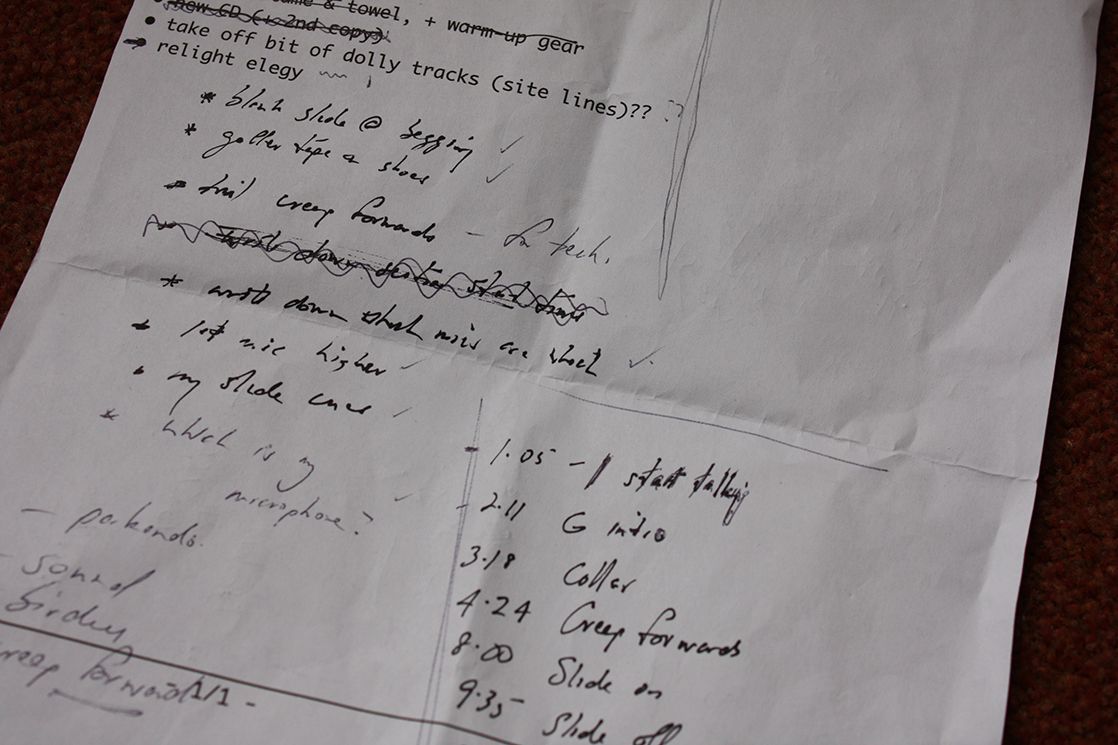 & towel, + warm-up gear
new CD (+ 2nd copy)
• take off bit of dolly tracks (site lines)?? ??
relight elegy
* blank slide @ begging ✓
* gaffer tape shoes ✓
creep forwards - for tech.
down start
* down mics are ✓
mic higher ✓
• my slide cues ✓
* which is my
microphone? ✓
- 
- sound
creep forward
1/1 -
- 1.05 - I start talking
- 2.11 G intro
3.18 Collar
4.24 Creep forwards
8.00 Slide on
9.35 Slide off